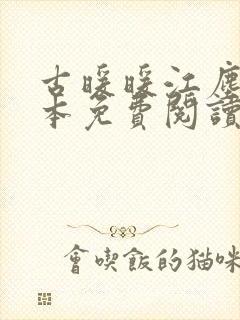 古暖暖江塵
本免費閱讀
會喫飯的猫咪